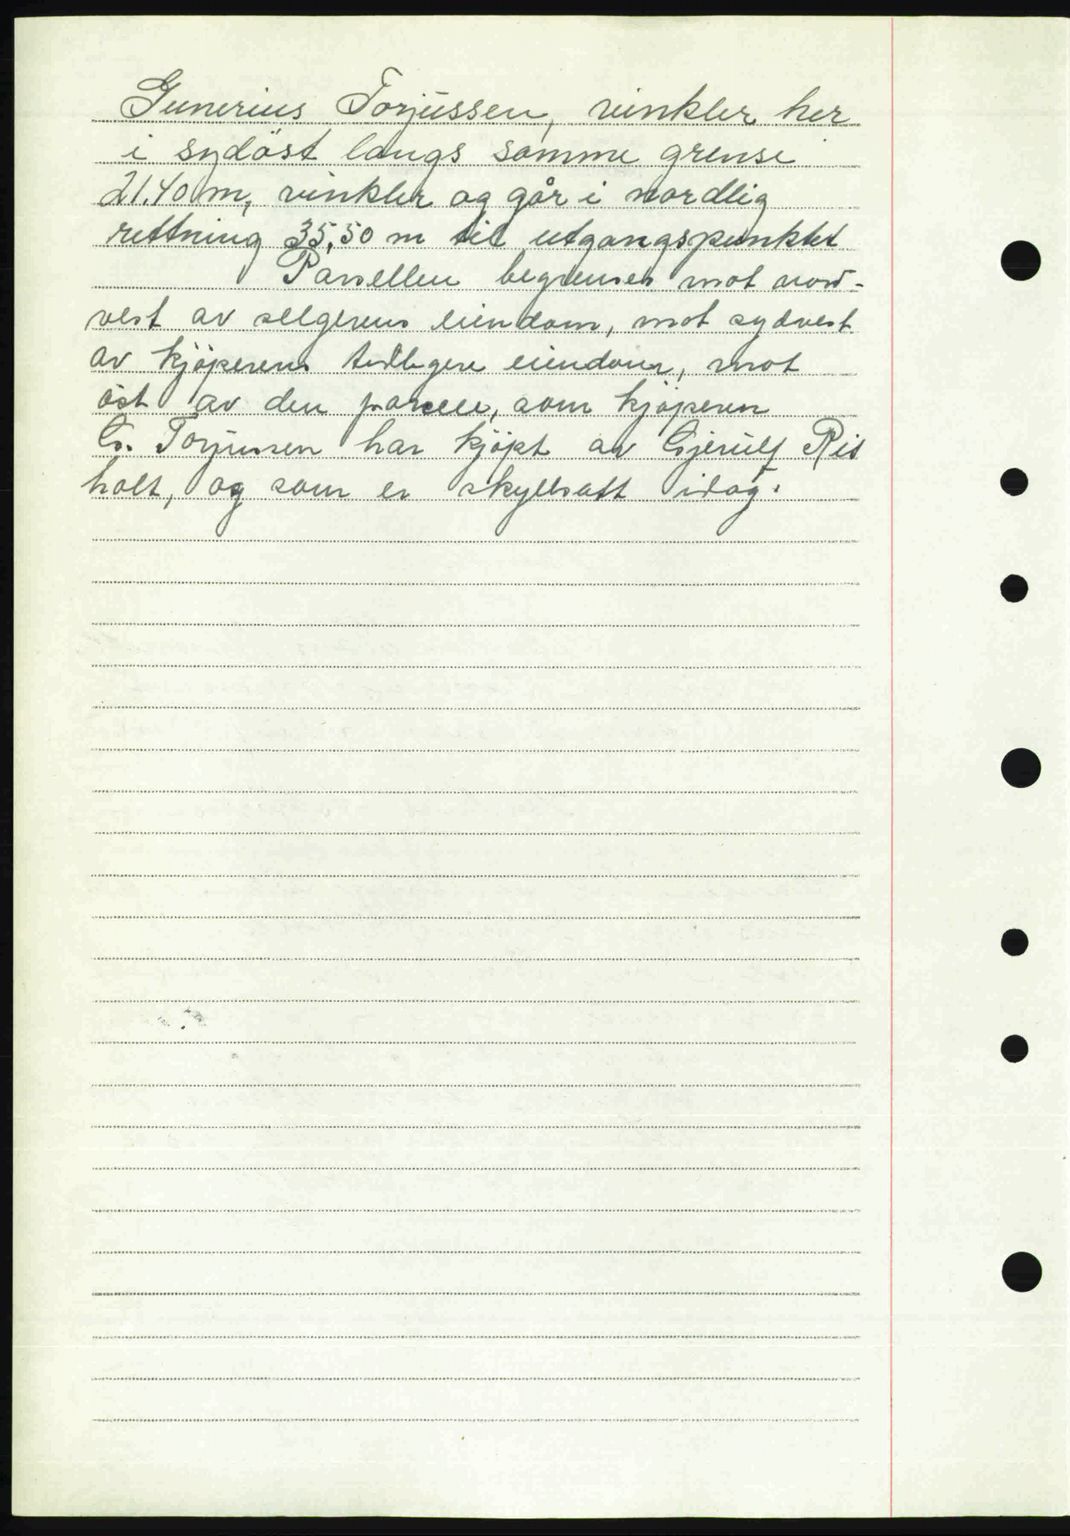 Gunerius Torjussen, vinkler her
i sydöst langs samme grense
21.40 m, vinkler og går i nordlig
rettning 35,50 m til utgangspunktet
Parsellen begrenses mot nord-
vest av selgerens eiendom, mot sydvest
av kjöperens tidligere eiendom, mot
öst av den parsell, som kjöperen
G. Torjussen har kjöpt av Gjerulf Ris
holt, og som er skyldsatt idag.